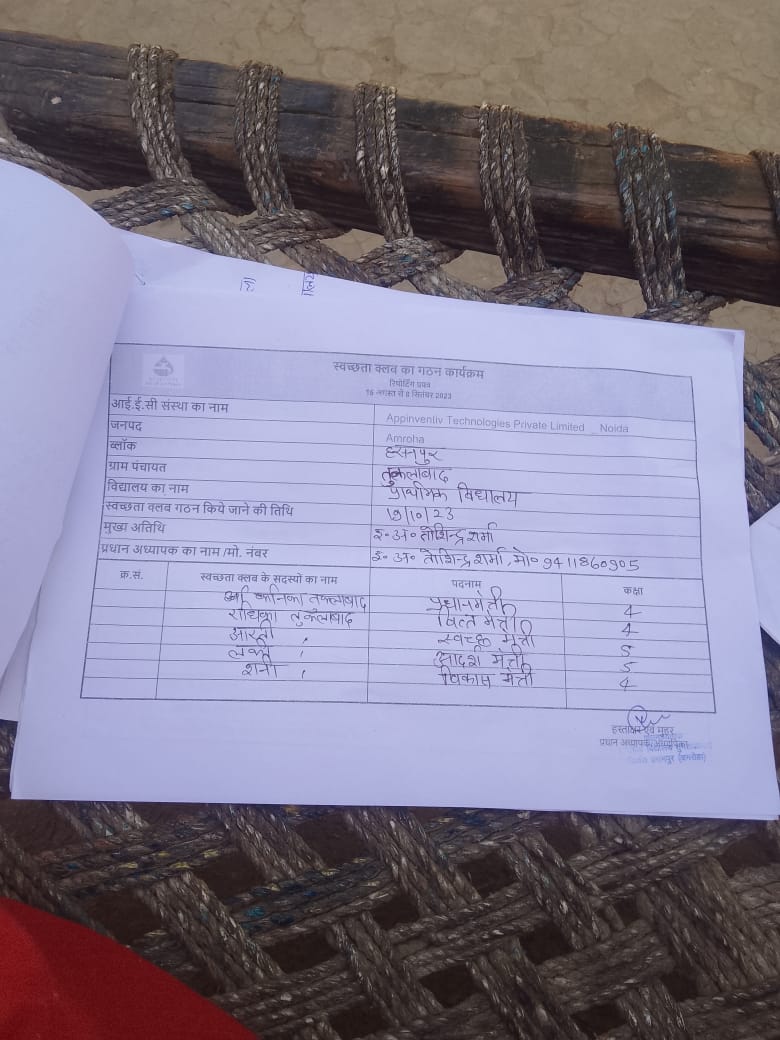 स्वच्छता क्लब का गठन कार्यक्रम
रिपोर्टिंग प्रपत्र
16 अगस्त से 8 सितंबर 2023
आई.ई.सी संस्था का नाम Appinventiv Technologies Private Limited _ Noida
जनपद Amroha
ब्लॉक हसनपुर
ग्राम पंचायत तुकलाबाद
विद्यालय का नाम प्राथमिक विद्यालय
स्वच्छता क्लब गठन किये जाने की तिथि /10/23
मुख्य अतिथि इ॰अ॰ तोशिन्द्र शर्मा
प्रधान अध्यापक का नाम /मो. नंबर इ॰अ॰ तोशिन्द्र शर्मा, मो॰ 9411860905
क्र.सं. स्वच्छता क्लब के सदस्यों का नाम पदनाम कक्षा
कनिका तुकलाबाद प्रधानमंत्री 4
राधिका तुकलाबाद वित्त मंत्री 4
आरती , स्वच्छ मंत्री 5
, आदर्श मंत्री 5
शनी , विकास मंत्री 4
हस्ताक्षर एवं मुहर
प्रधान अध्यापक/अध्यापिका